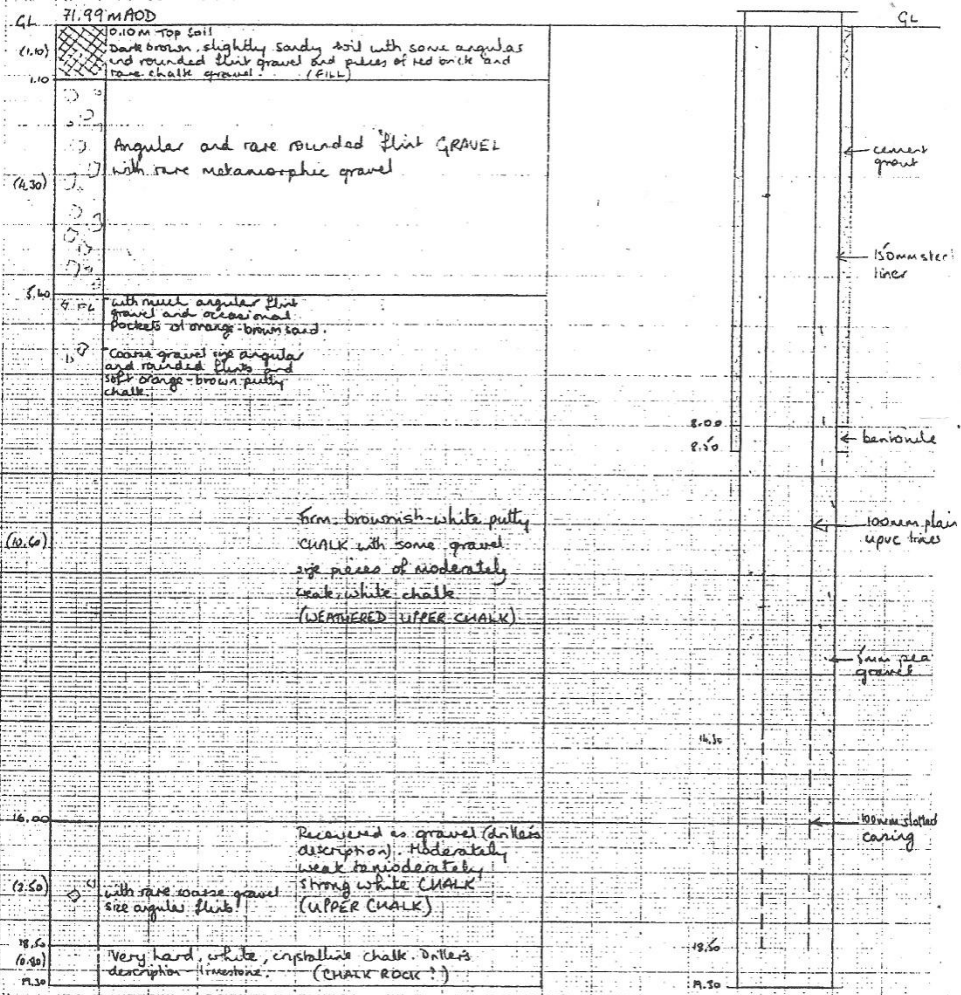 GL
71.99 mAOD
GL
0.10m Top Soil
Dark brown, slightly sandy soil with some angular
and rounded flint gravel and pieces of red brick and
rare chalk gravel. (FILL)
(1.10)
1.10
Angular and rare rounded flint GRAVEL
with rare metamorphic gravel
(4.30)
5.40
with much angular flint
gravel and occasional
pockets of orange-brown sand.
Coarse gravel size angular
and rounded flints and
soft orange-brown putty
chalk.
Firm brownish-white putty
CHALK with some gravel
size pieces of moderately
weak white chalk
(WEATHERED UPPER CHALK)
(10.60)
16.00
Recovered as gravel (drillers
description). Moderately
weak to moderately
strong white CHALK
(UPPER CHALK)
(2.50)
with rare coarse gravel
size angular flints
18.50
(0.80)
Very hard, white, crystalline chalk. Drillers
description - limestone. (CHALK ROCK?)
19.30
cement
grout
150mm steel
liner
8.00
8.50
bentonite
100mm plain
upvc lines
5mm pea
gravel
14.50
100mm slotted
casing
18.50
19.30